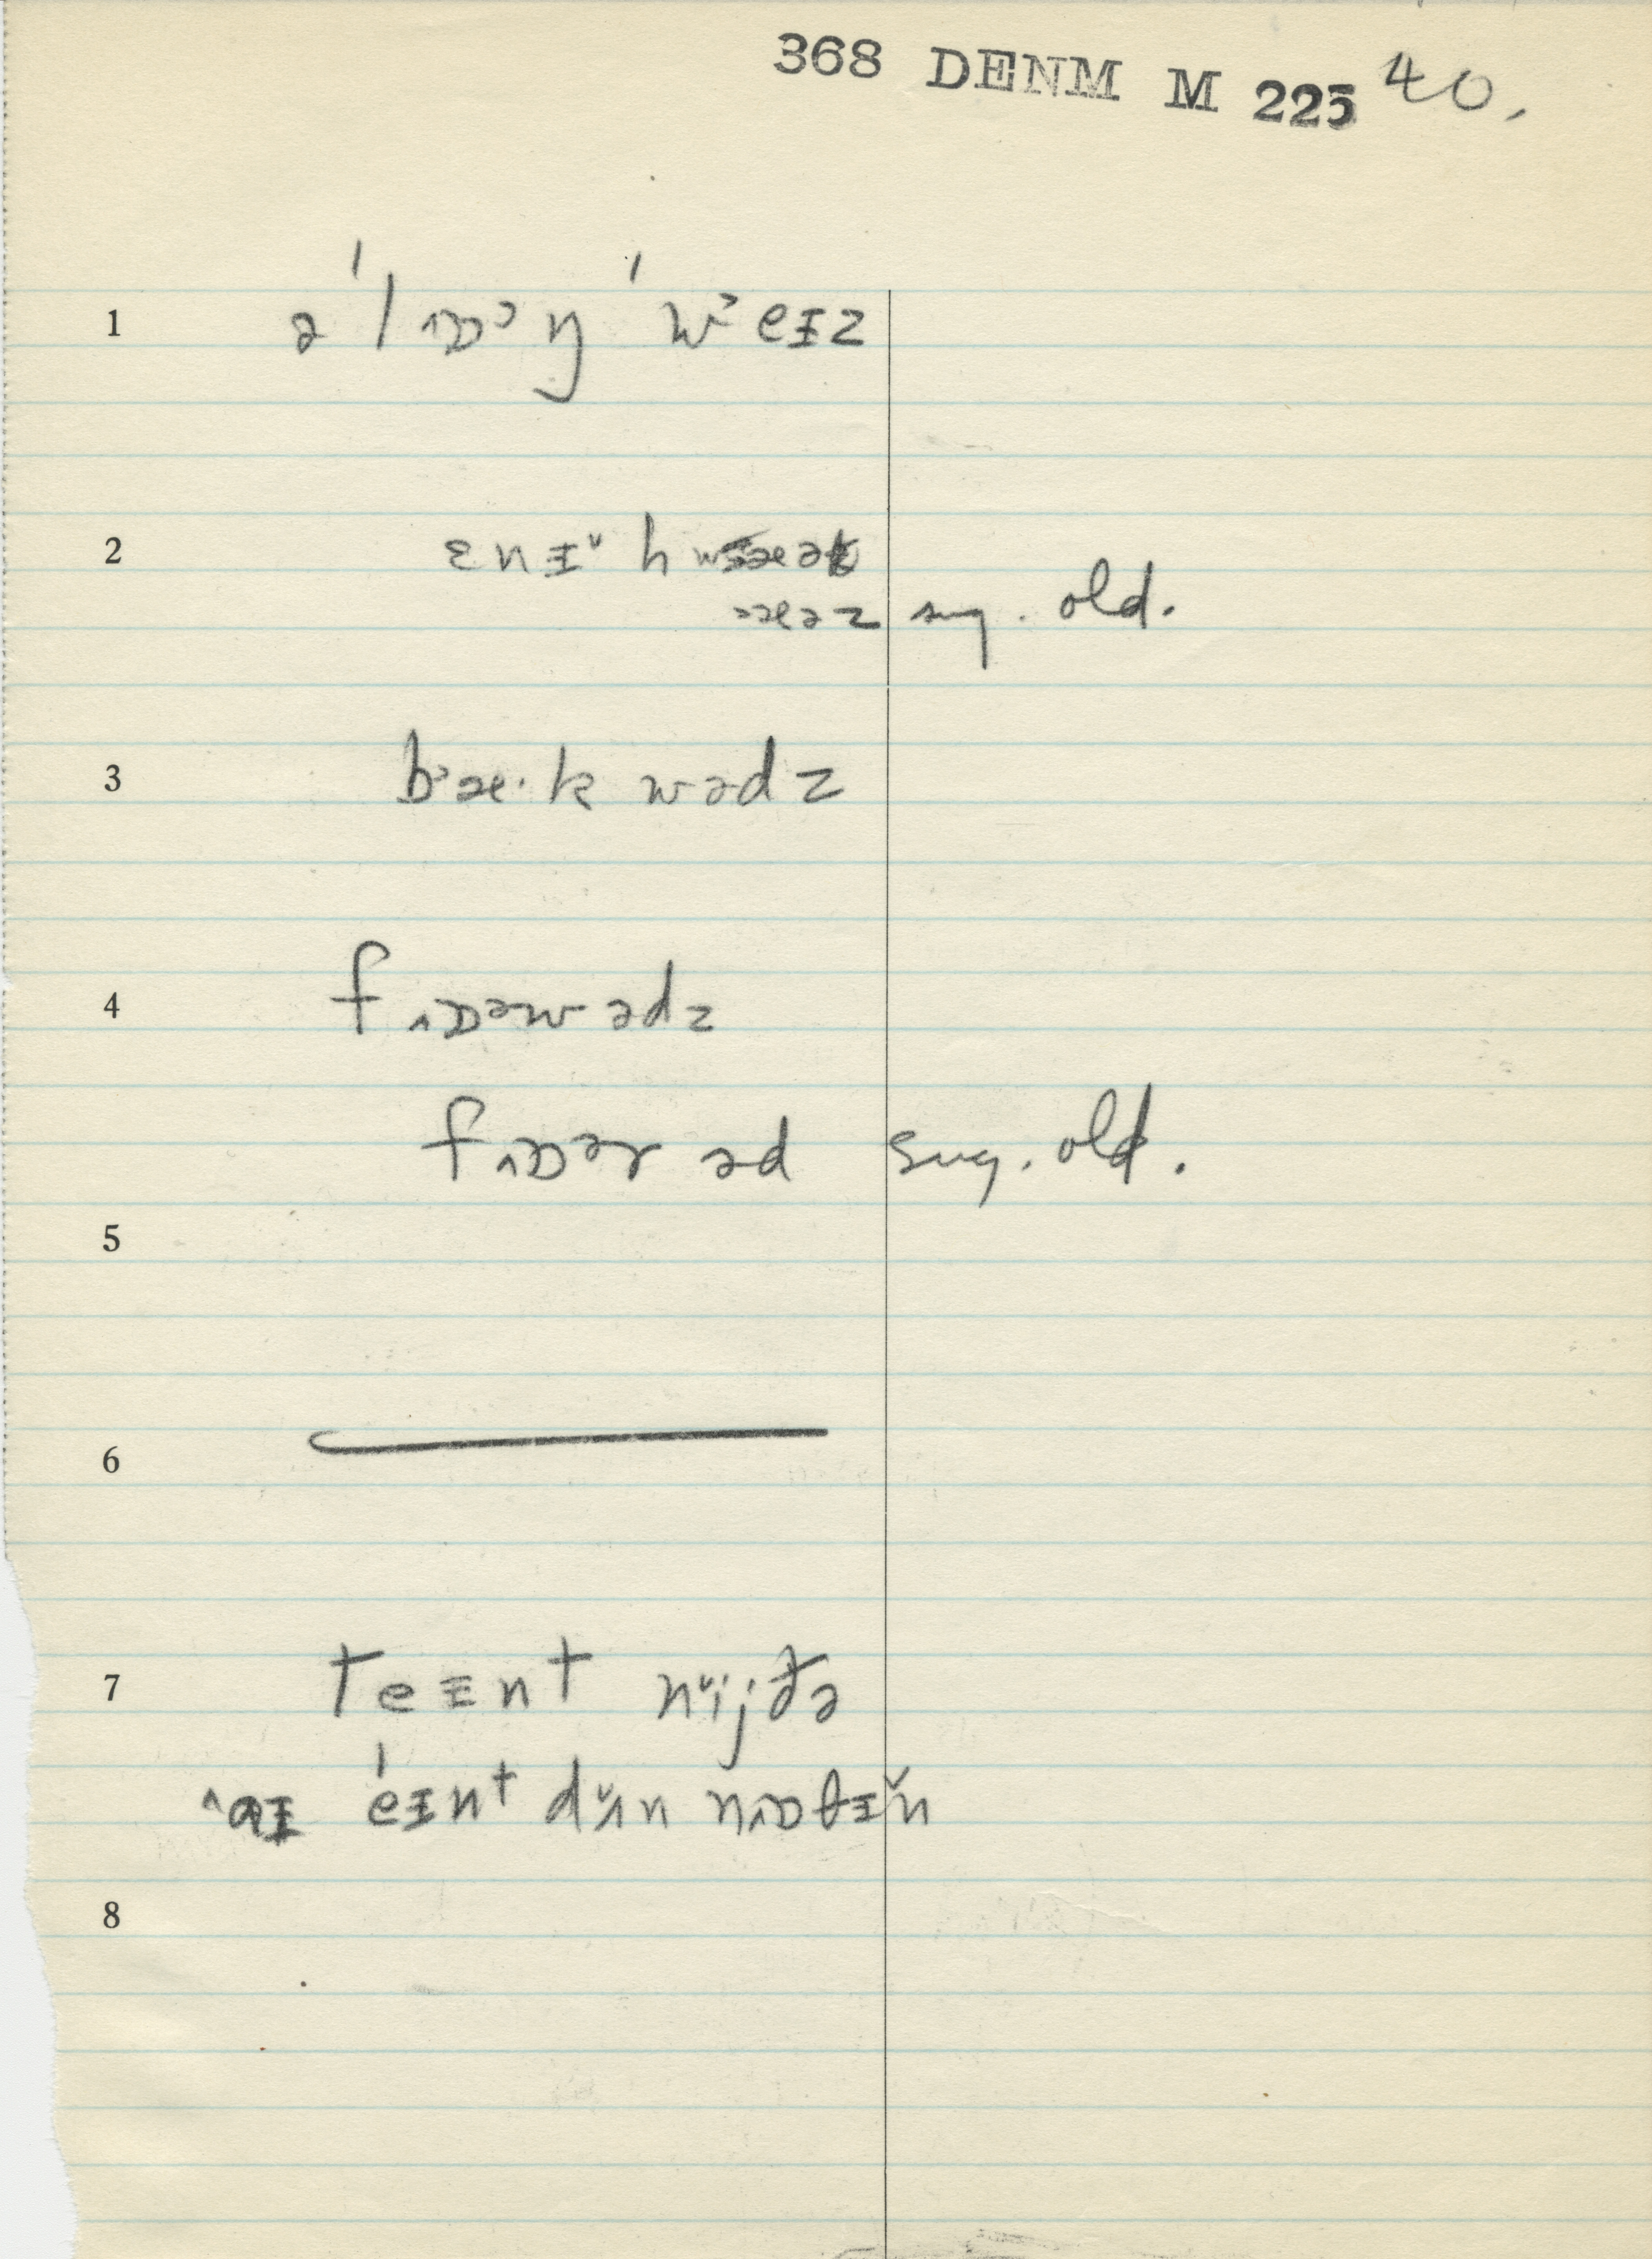 368 DENM M 225 40.
1 ə ˈl ˄ɒᵓ ŋ ˈ wᵓ eɪz
2 ɛnɪ˅ h
ᵊæəz sug. old.
3 bᵊæ·k wədz
4 f˄ɒəw ədz
f˄ɒər əd sug. old.
5
6
7 teɪnt n˅ijðə
˄aɪ éɪnt d˅ʌn n˄ɒθɪ̌n
8